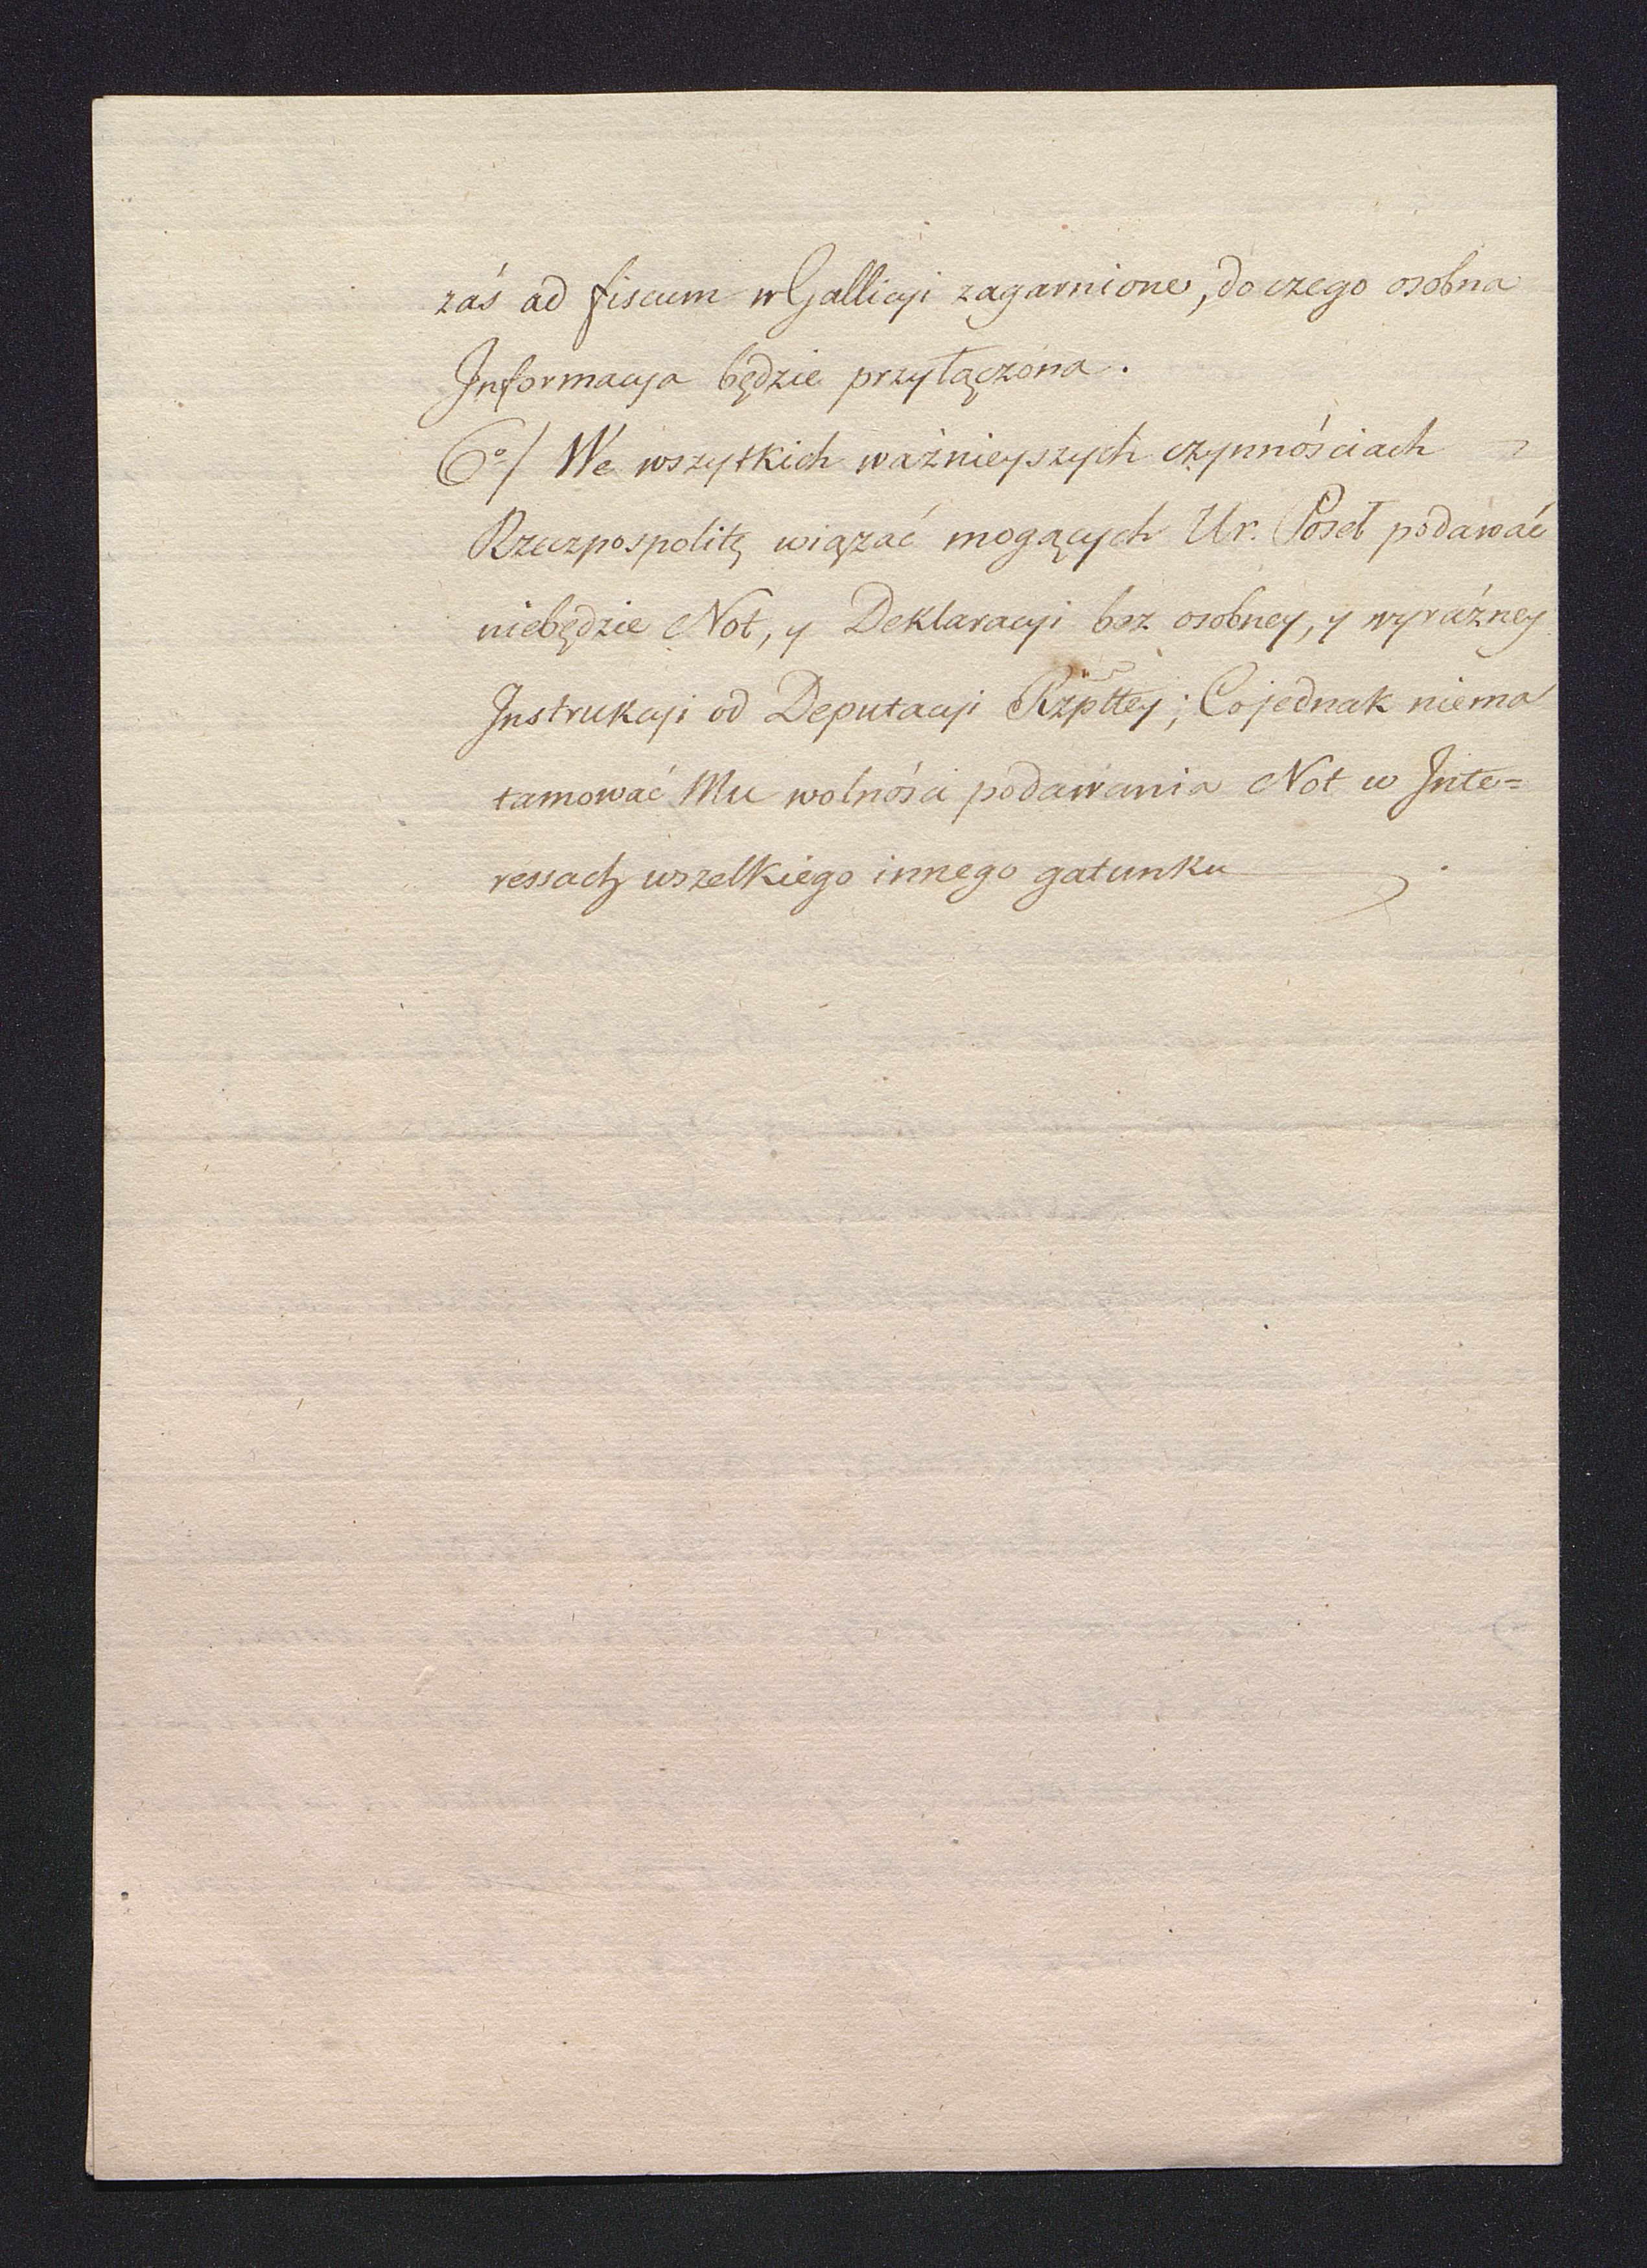 zaś ad fiscum w Gallicyi zagarnione, do czego osobna
Informacya będzie przyłączona.
6º/ We wszytkich ważnieyszych czynnościach
Rzeczpospolitę wiązać mogących Ur. Poseł podawać
niebędzie Not, y Deklaracyi bez osobney, y wyraźney
Instrukcyi od Deputacyi Rzpttey; Co jednak niema
tamować Mu wolności podawania Not w Inte=
ressach wszelkiego innego gatunku